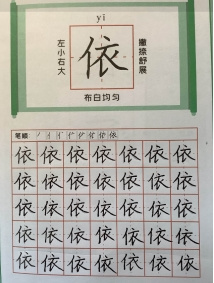 yī
左小右大
依
撇捺舒展
布白均匀
笔顺: 丿 亻 亻 伫 佗 依 依 依
依 依 依 依 依 依 依
依 依 依 依 依 依 依
依 依 依 依 依 依 依
依 依 依 依 依 依 依
依 依 依 依 依 依 依